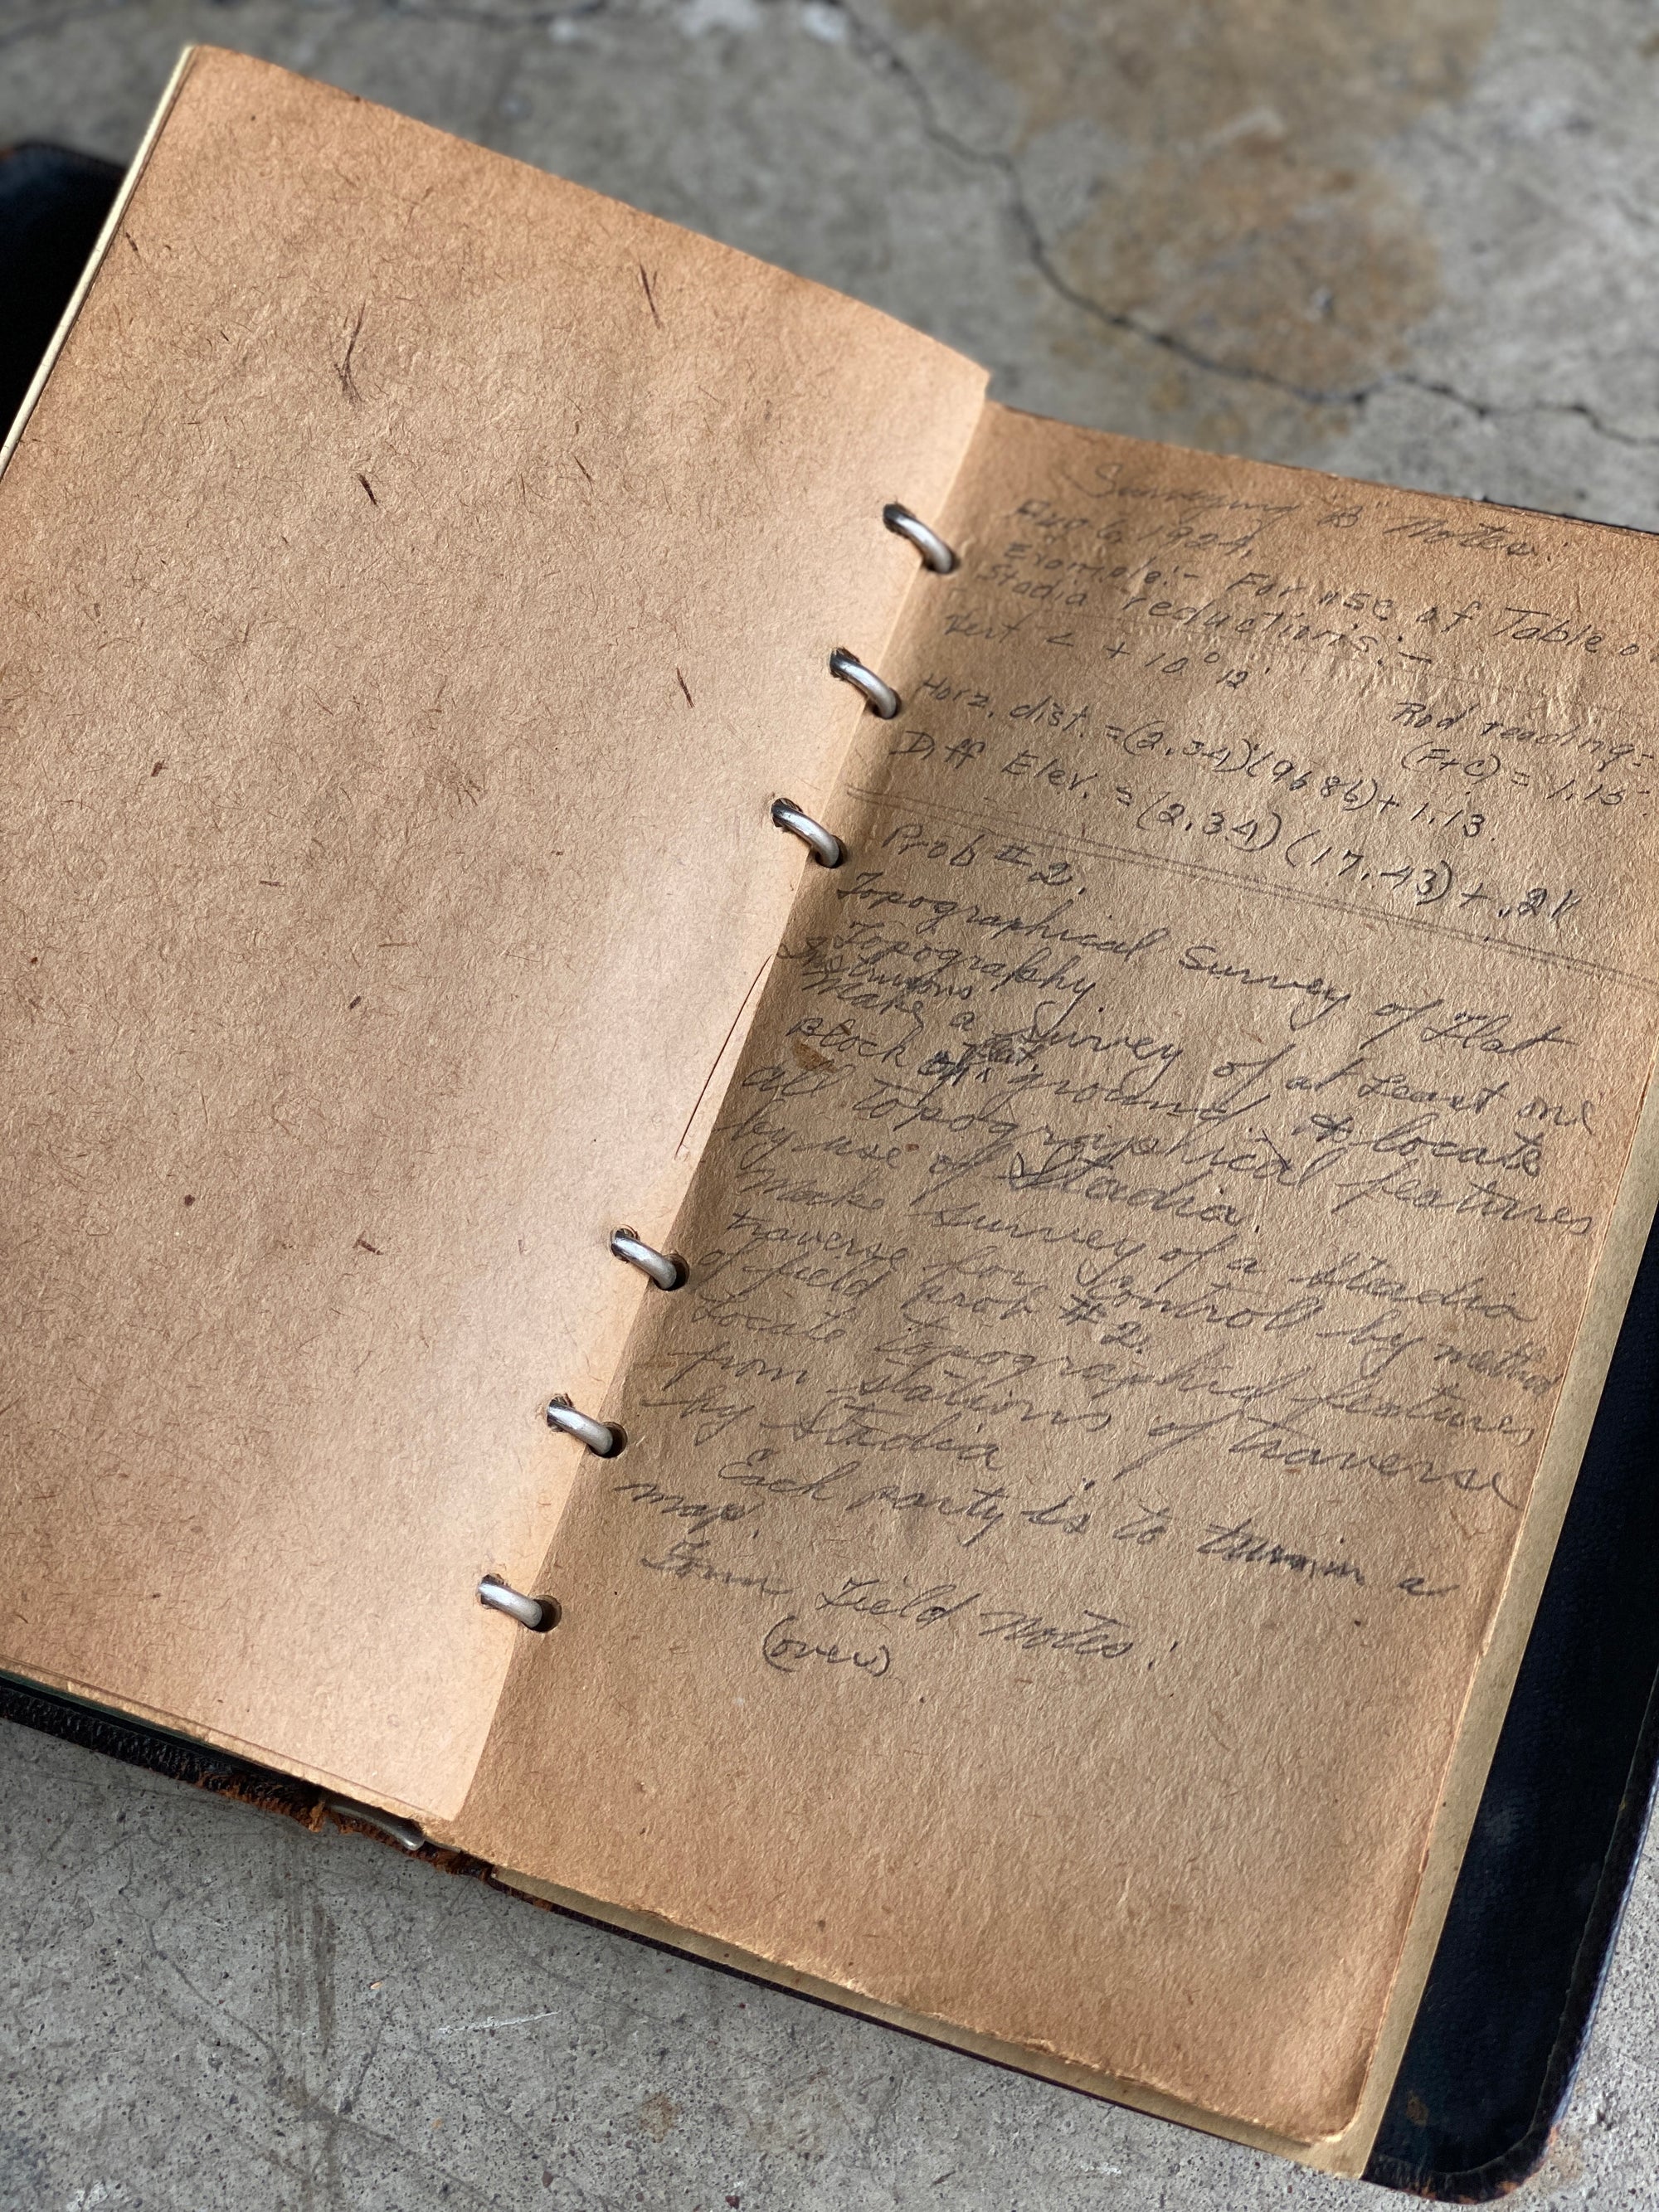 Surveying "B" Notes:
Aug 6, 1924,
Example:- For use of Table
Stadia reductions:-
Vert < + 10° 12'
Rod reading=
(F+C) = 1.15
Horz. dist. = (2.34)(9686)+1.13.
Diff Elev. = (2.34) (17.43) + .21
Prob # 2.
Topographical Survey of Flat
Topography.
Make a Survey of at Least one
Block of flat ground. & locate
all topographical features
by use of Stadia.
Make survey of a Stadia
traverse for controll by method
of field prob #2.
Locate topographical features
from stations of traverse
by Stadia
Each party is to turn in a
map.
Form Field Notes:
(over)